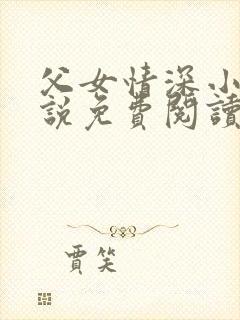 父女情深小
說免費閱讀
賈笑